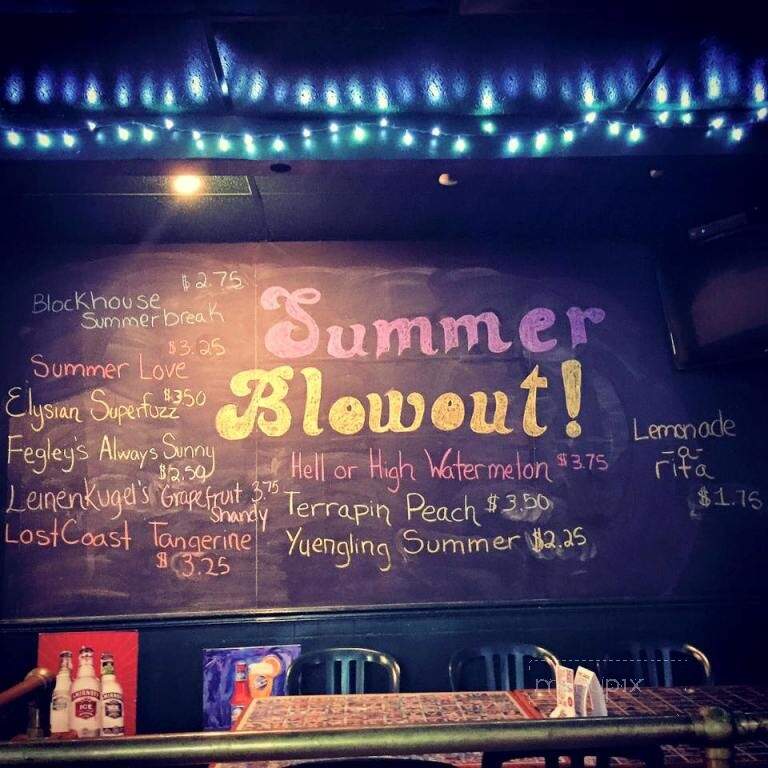 Summer
Blowout!
$2.75
Blockhouse
Summerbreak
$3.25
Summer Love
Elysian Superfuzz $350
Fegley's Always Sunny
$2.50
Leinenkugel's Grapefruit 3.75
Shandy
LostCoast Tangerine
$3.25
Hell or High Watermelon $3.75
Terrapin Peach $3.50
Yuengling Summer $2.25
Lemonade
-a-
rita
$1.75
SMIRNOFF
ICE